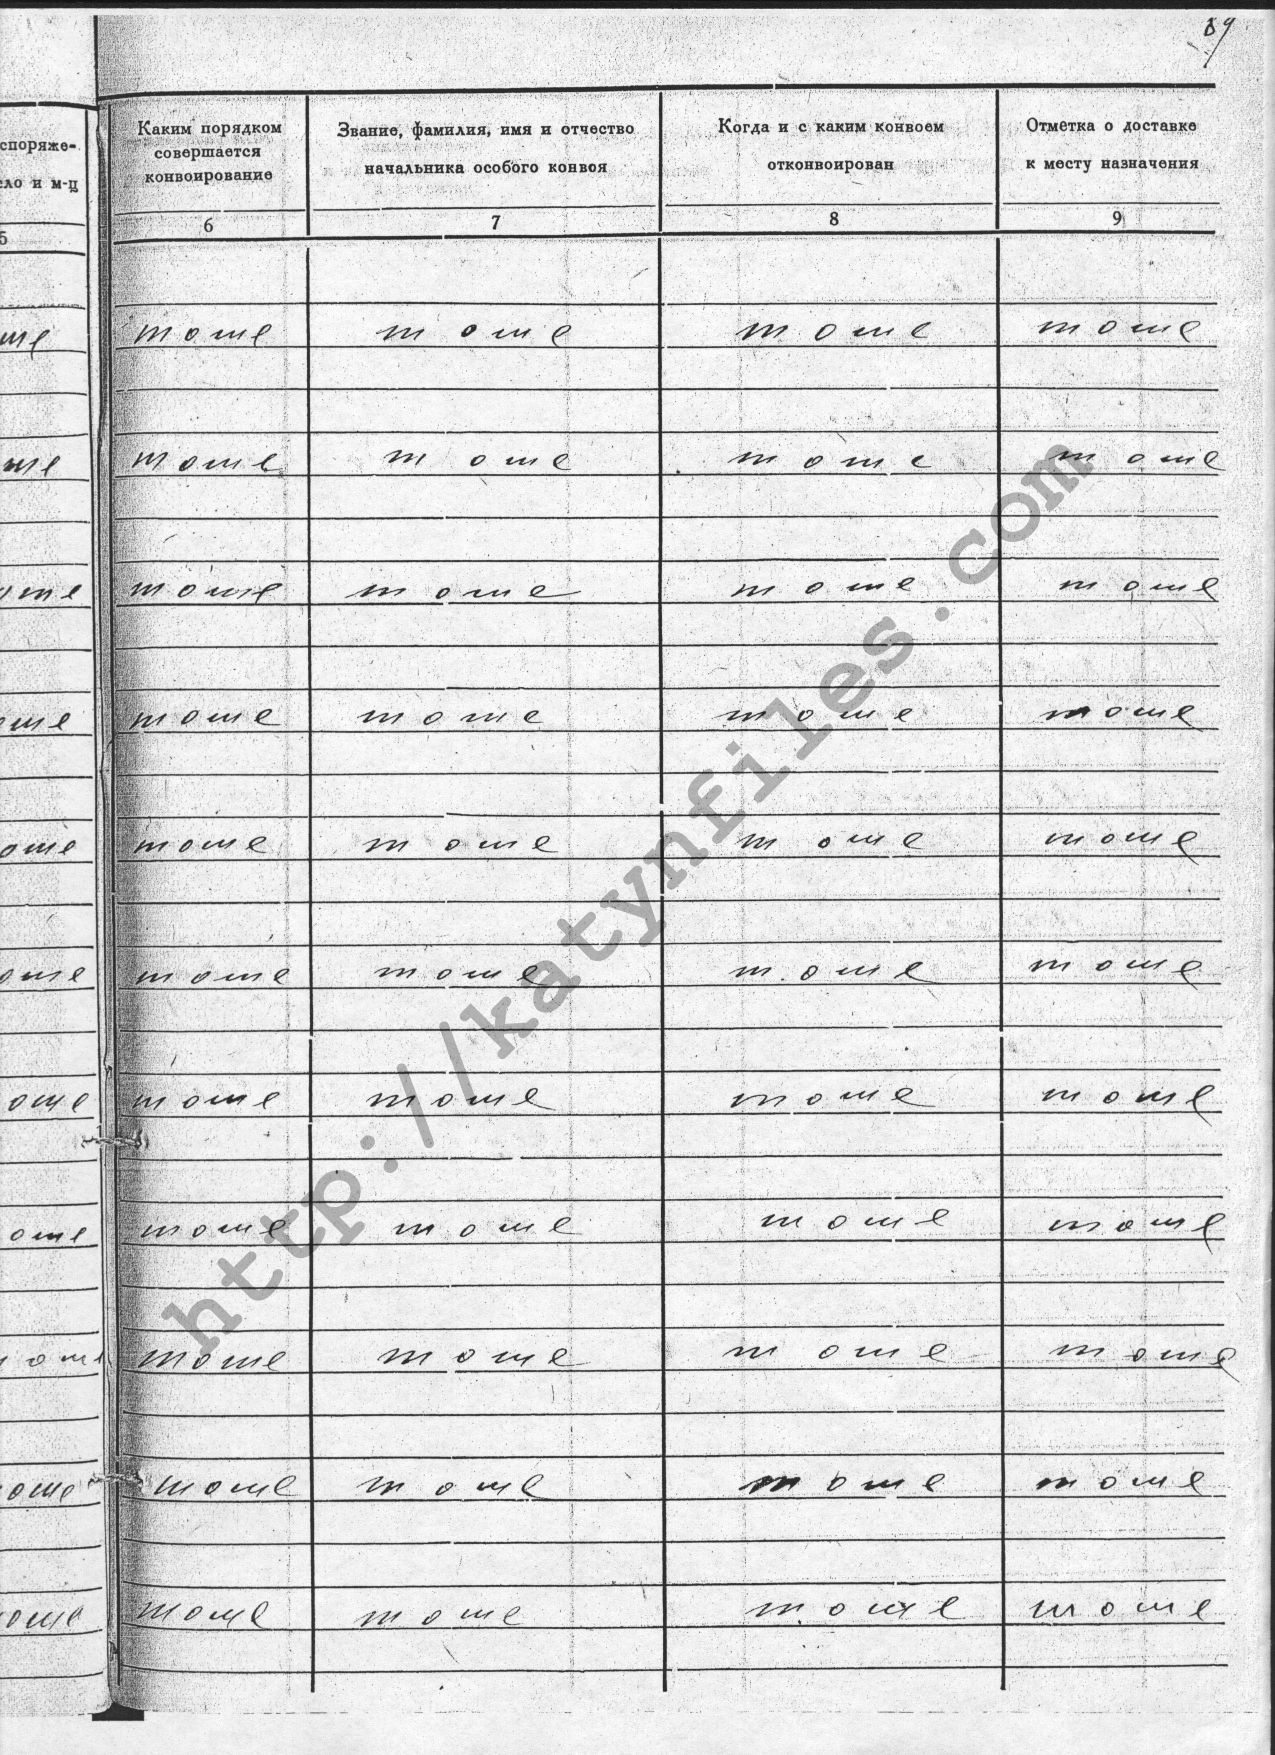 89
споряже- Каким порядком Звание, фамилия, имя и отчество Когда и с каким конвоем Отметка о доставке
совершается
сло и м-ц конвоирование начальника особого конвоя отконвоирован к месту назначения
5 6 7 8 9
тоже тоже тоже тоже
тоже тоже тоже тоже
оже тоже тоже тоже тоже
оже тоже тоже тоже тоже
оже тоже тоже тоже тоже
оже тоже тоже тоже тоже
оже тоже тоже тоже тоже
оже тоже тоже тоже тоже
тоже тоже тоже тоже
оже тоже тоже тоже тоже
оже тоже тоже тоже тоже
http://katynfiles.com